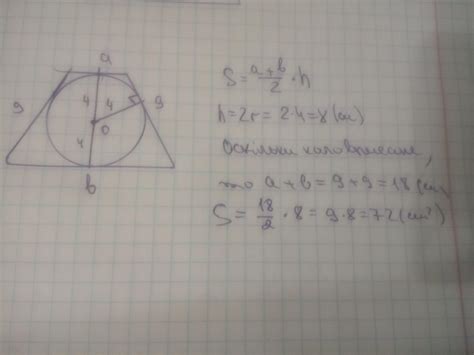 a
9
4 4
9
O
4
b
S = a+b/2 · h
h = 2r = 2·4 = 8 (см)
Оскільки коло вписане,
то a + b = 9 + 9 = 18 (см)
S = 18/2 · 8 = 9 · 8 = 72 (см²)